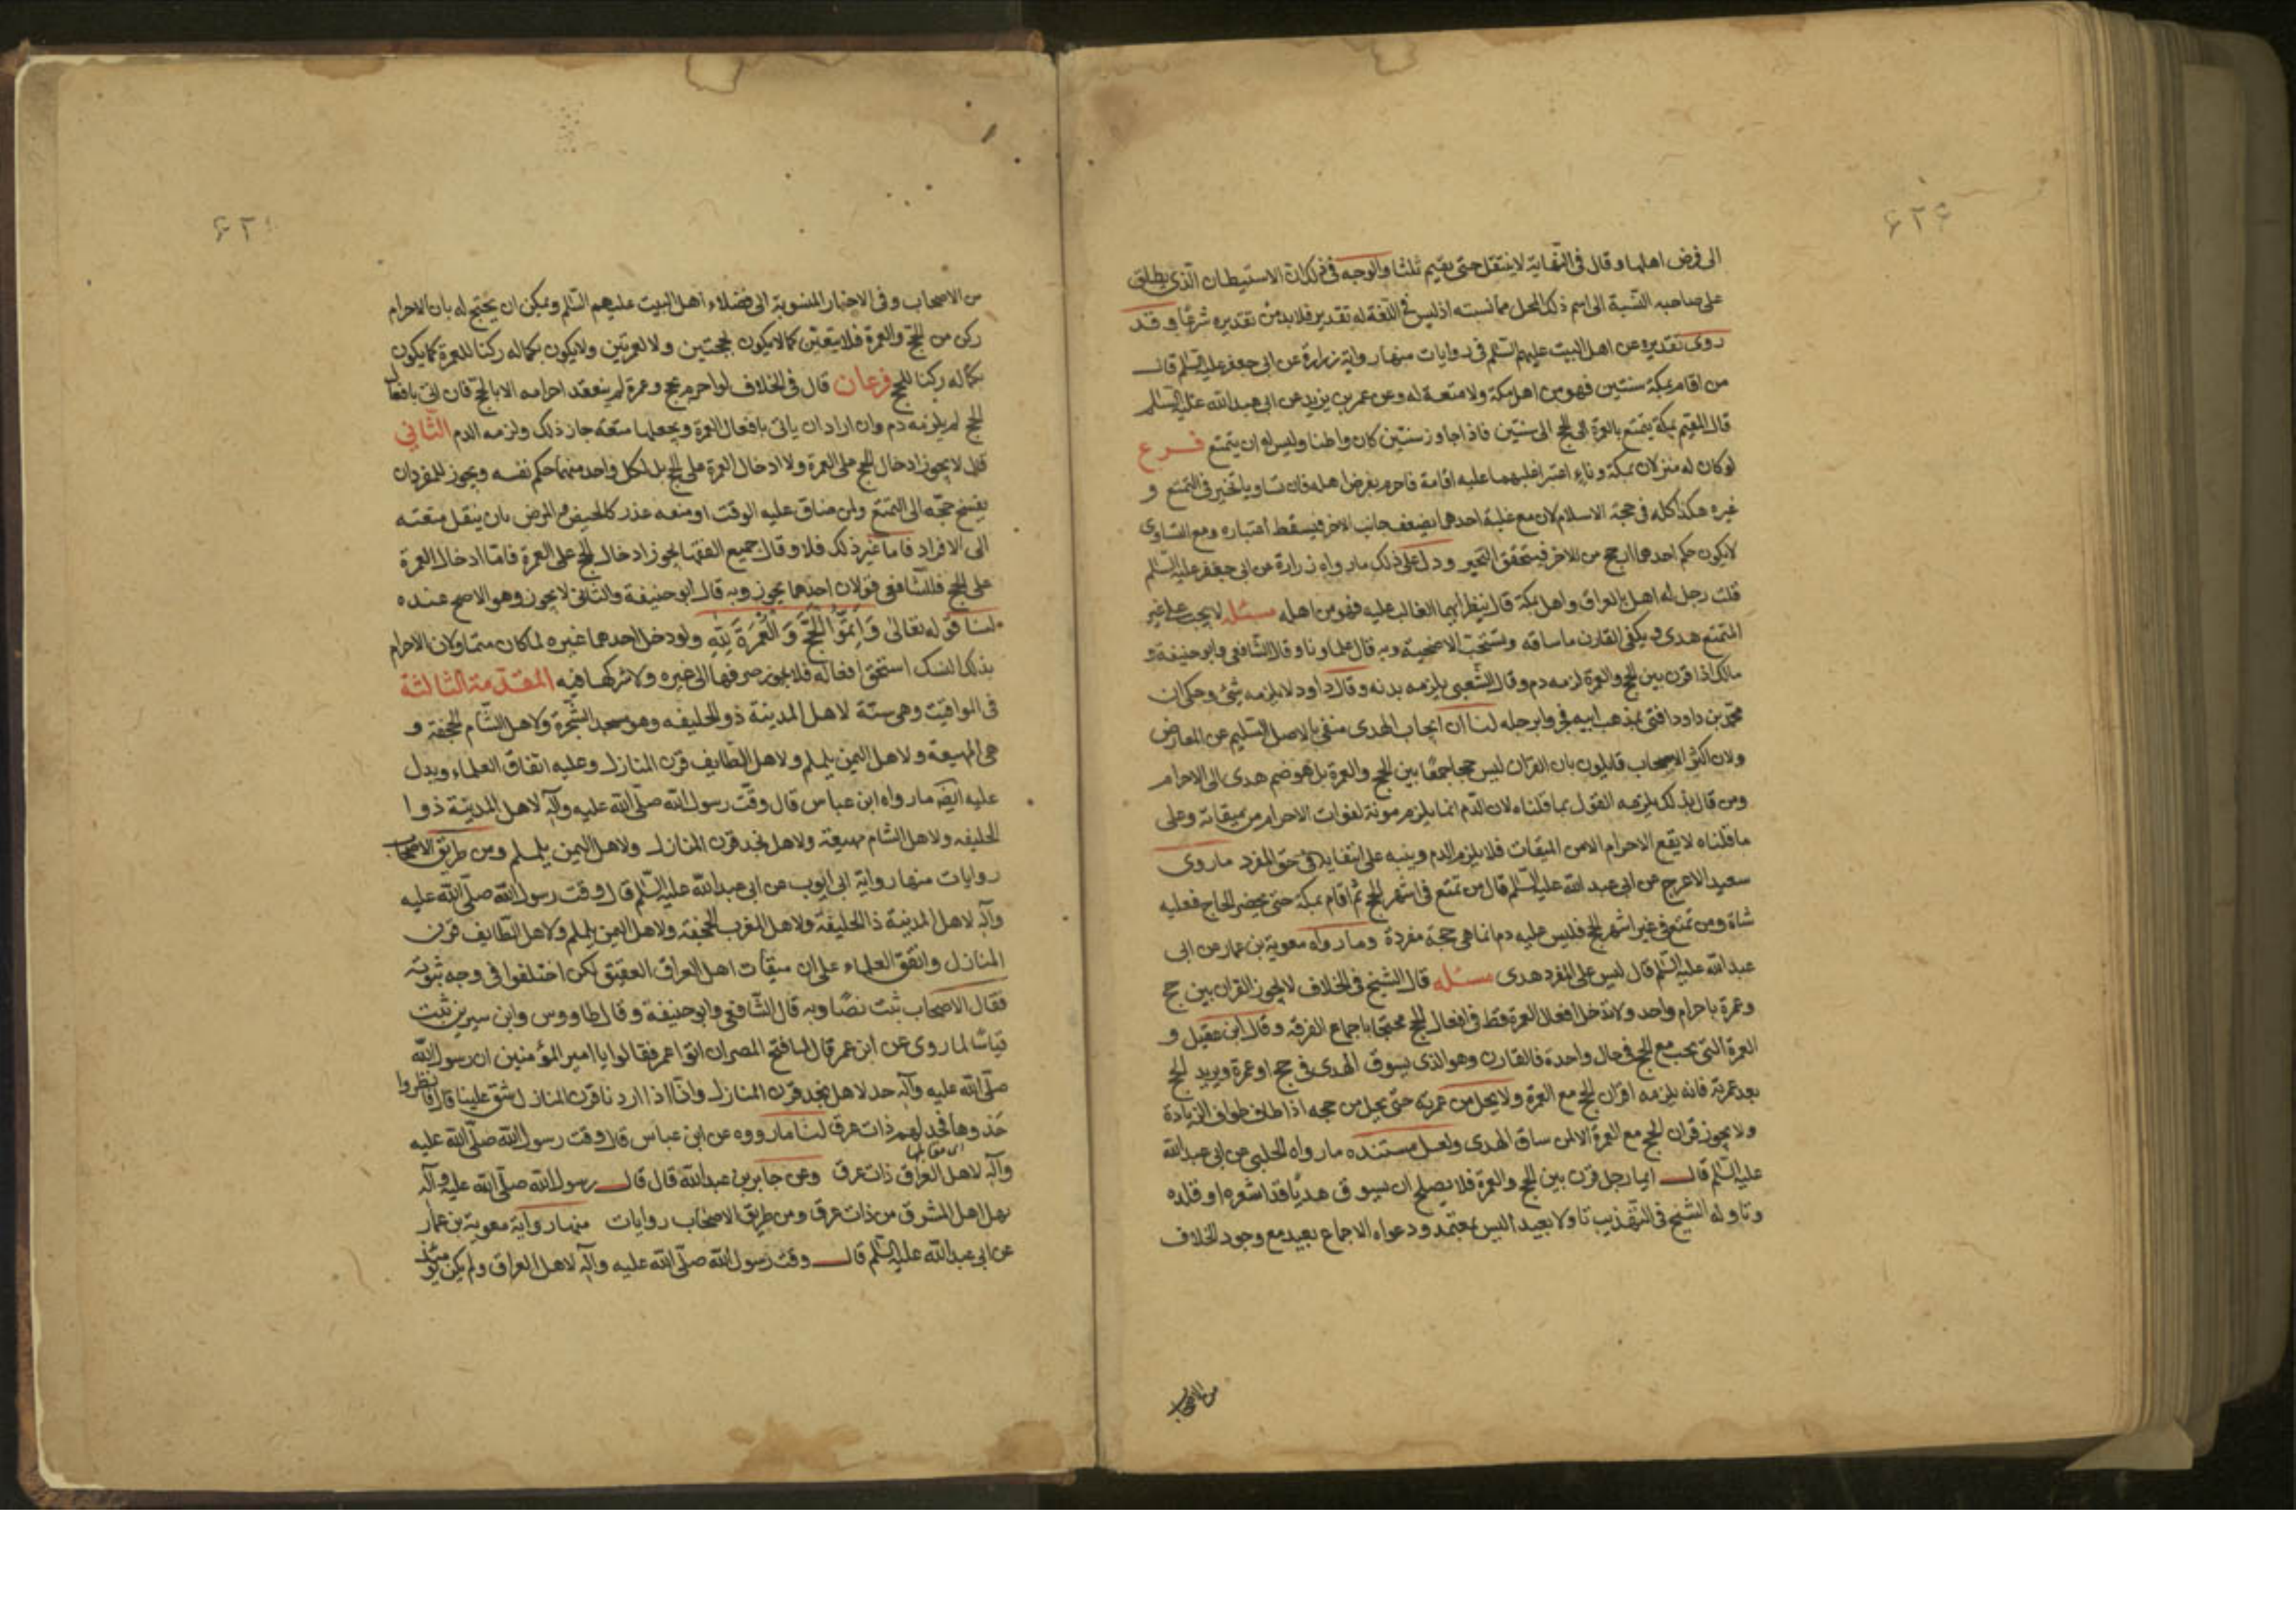 ۶۲۶
الى فرض اهلها وقال فى النهاية لا ينتقل حتى يقيم ثلثا والوجه فى ذلك ان الاستيطان الذى يطلق
على صاحبه النسبة الى اسم ذلك المحل مما نسبته اذ ليس فى اللغة له تقدير فلابد من تقديره شرعا وقد
روى تقديره عن اهل البيت عليهم السلم فى روايات منها رواية زرارة عن ابى جعفر عليه السلم قال
من اقام بمكة سنتين فهو من اهل مكة ولا متعة له وعن عمر بن يزيد عن ابى عبد الله عليه السلم
قال المقيم بمكة يتمتع بالعمرة الى الحج الى سنتين فاذا جاوز سنتين كان قاطنا وليس له ان يتمتع فرع
لو كان له منزلان بمكة وناء اعتبر اغلبهما عليه اقامة فاحرم بفرض اهله فان تساويا تخير فى التمتع و
غيره هكذا كله فى حجة الاسلام لان مع غلبة احدهما يضعف جانب الاخر فيسقط اعتباره ومع التساوى
لا يكون حكم احدهما ارجح من الاخر فيتحقق التخير ودل على ذلك ما رواه زرارة عن ابى جعفر عليه السلم
قلت رجل له اهل بالعراق واهل بمكة قال ينظر ايهما الغالب عليه فهو من اهله مسئله لا يجب على غير
المتمتع هدى ويكفى القارن ما ساقه وتستحب الاضحية وبه قال علماؤنا وقال الشافعى وابو حنيفة و
مالك اذا قرن بين الحج والعمرة لزمه دم وقال الشعبى يلزمه بدنه وقال داود لا يلزمه شئ وحكى ان
محمد بن داود افتى بمذهب ابيه فجروا برجله لنا ان ايجاب الهدى منفى بالاصل السليم عن المعارض
ولان اكثر الاصحاب قايلون بان القران ليس حجا جمعا بين الحج والعمرة بل هو ضم هدى الى الاحرام
ومن قال بذلك يلزمه القول بما قلناه لان الدم انما يلزم مؤنة لفوات الاحرام من ميقاته وعلى
ما قلناه لا يقع الاحرام الا من الميقات فلا يلزم الدم وينبه على انتفايه فى حق المفرد ما روى
سعيد الاعرج عن ابى عبد الله عليه السلم قال من تمتع فى اشهر الحج ثم اقام بمكة حتى يحضر الحاج فعليه
شاة ومن تمتع فى غير اشهر الحج فليس عليه دم انما هى حجة مفردة وما رواه معوية بن عمار عن ابى
عبد الله عليه السلم قال ليس على المفرد هدى مسئله قال الشيخ فى الخلاف لا يجوز القران بين حج
وعمرة باحرام واحد ولا تدخل افعال العمرة قط فى افعال الحج محتجا باجماع الفرقة وقال ابن عقيل و
العمرة التى يجب مع الحج فى حال واحدة فالقارن وهو الذى يسوق الهدى فى حج او عمرة ويريد الحج
بعد عمرته فانه يلزمه اقران الحج مع العمرة ولا يحل من عمرته حتى يحل من حجه اذا طاف طواف الزيادة
ولا يجوز قران الحج مع العمرة الا لمن ساق الهدى ولعل مستنده ما رواه الحلبى عن ابى عبد الله
عليه السلم قال ايما رجل قرن بين الحج والعمرة فلا يصلح ان يسوق هديا قد اشعره او قلده
وتاوله الشيخ فى التهذيب تاولا بعيدا ليس بمعتمد ودعواه الاجماع بعيد مع وجود الخلاف
من الاصحاب
من الاصحاب وفى الاخبار المنسوبة الى فضلاء اهل البيت عليهم السلم ويمكن ان يحتج له بان الاحرام
ركن من الحج والعمرة فلا يتبعض كما لا يكون لحجتين ولا لعمرتين ولا يكون بكماله ركنا للعمرة كما يكون
بكماله ركنا للحج فرعان قال فى الخلاف لو احرم بحج وعمرة لم ينعقد احرامه الا بالحج فان اتى بافعال
الحج لم يلزمه دم وان اراد ان ياتى بافعال العمرة ويجعلها متعة جاز ذلك ولزمه الدم الثانى
قال لا يجوز ادخال الحج على العمرة ولا ادخال العمرة على الحج بل لكل واحد منهما حكم نفسه ويجوز للمفرد ان
يفسخ حجه الى التمتع ولمن ضاق عليه الوقت او منعه عذر كالحيض والمرض بان ينقل متعته
الى الافراد فاما غير ذلك فلا وقال جميع الفقها يجوز ادخال الحج على العمرة فاما ادخال العمرة
على الحج فللشافعى قولان احدهما يجوز وبه قال ابو حنيفة والثانى لا يجوز وهو الاصح عنده
لنا قوله تعالى وَاَتِمُّوا الْحَجَّ وَالْعُمْرَةَ لِلّٰهِ ولو دخل احدهما غيره لما كان متما ولان الاحرام
بذلك النسك استحق افعاله فلا يجوز صرفها الى غيره ولا تركها فيه المقدمة الثالثة
فى المواقيت وهى ستة لاهل المدينة ذو الحليفه وهو مسجد الشجرة ولاهل الشام الجحفة و
هى المهيعة ولاهل اليمن يلملم ولاهل الطايف قرن المنازل وعليه اتفاق العلماء ويدل
عليه ايضه ما رواه ابن عباس قال وقت رسول الله صلى الله عليه وآله لاهل المدينة ذوا
الحليفه ولاهل الشام مهيعة ولاهل نجد قرن المنازل ولاهل اليمن يلملم ومن طريق الاصحاب
روايات منها رواية ابى ايوب عن ابى عبد الله عليه السلم قال وقت رسول الله صلى الله عليه
وآله لاهل المدينة ذا الحليفة ولاهل المغرب الجحفة ولاهل اليمن يلملم ولاهل الطايف قرن
المنازل واتفق العلماء على ان ميقات اهل العراق العقيق لكن اختلفوا فى وجه ثبوته
فقال الاصحاب ثبت نصا وبه قال الشافعى وابو حنيفة وقال طاووس وابن سيرين ثبت
قياسا لما روى عن ابن عمر قال لما فتح المصران اتوا عمر فقالوا يا امير المؤمنين ان رسول الله
صلى الله عليه وآله حد لاهل نجد قرن المنازل وانا اذا اردنا قرن المنازل شق علينا قال فانظروا
حذوها فحد لهم ذات عرق لنا ما رووه عن ابن عباس قال وقت رسول الله صلى الله عليه
وآله لاهل العراق ذات عرق وعن جابر بن عبد الله قال قال رسول الله صلى الله عليه وآله
يهل اهل المشرق من ذات عرق ومن طريق الاصحاب روايات منها رواية معوية بن عمار
عن ابى عبد الله عليه السلم قال وقت رسول الله صلى الله عليه وآله لاهل العراق ولم يكن يومئذ